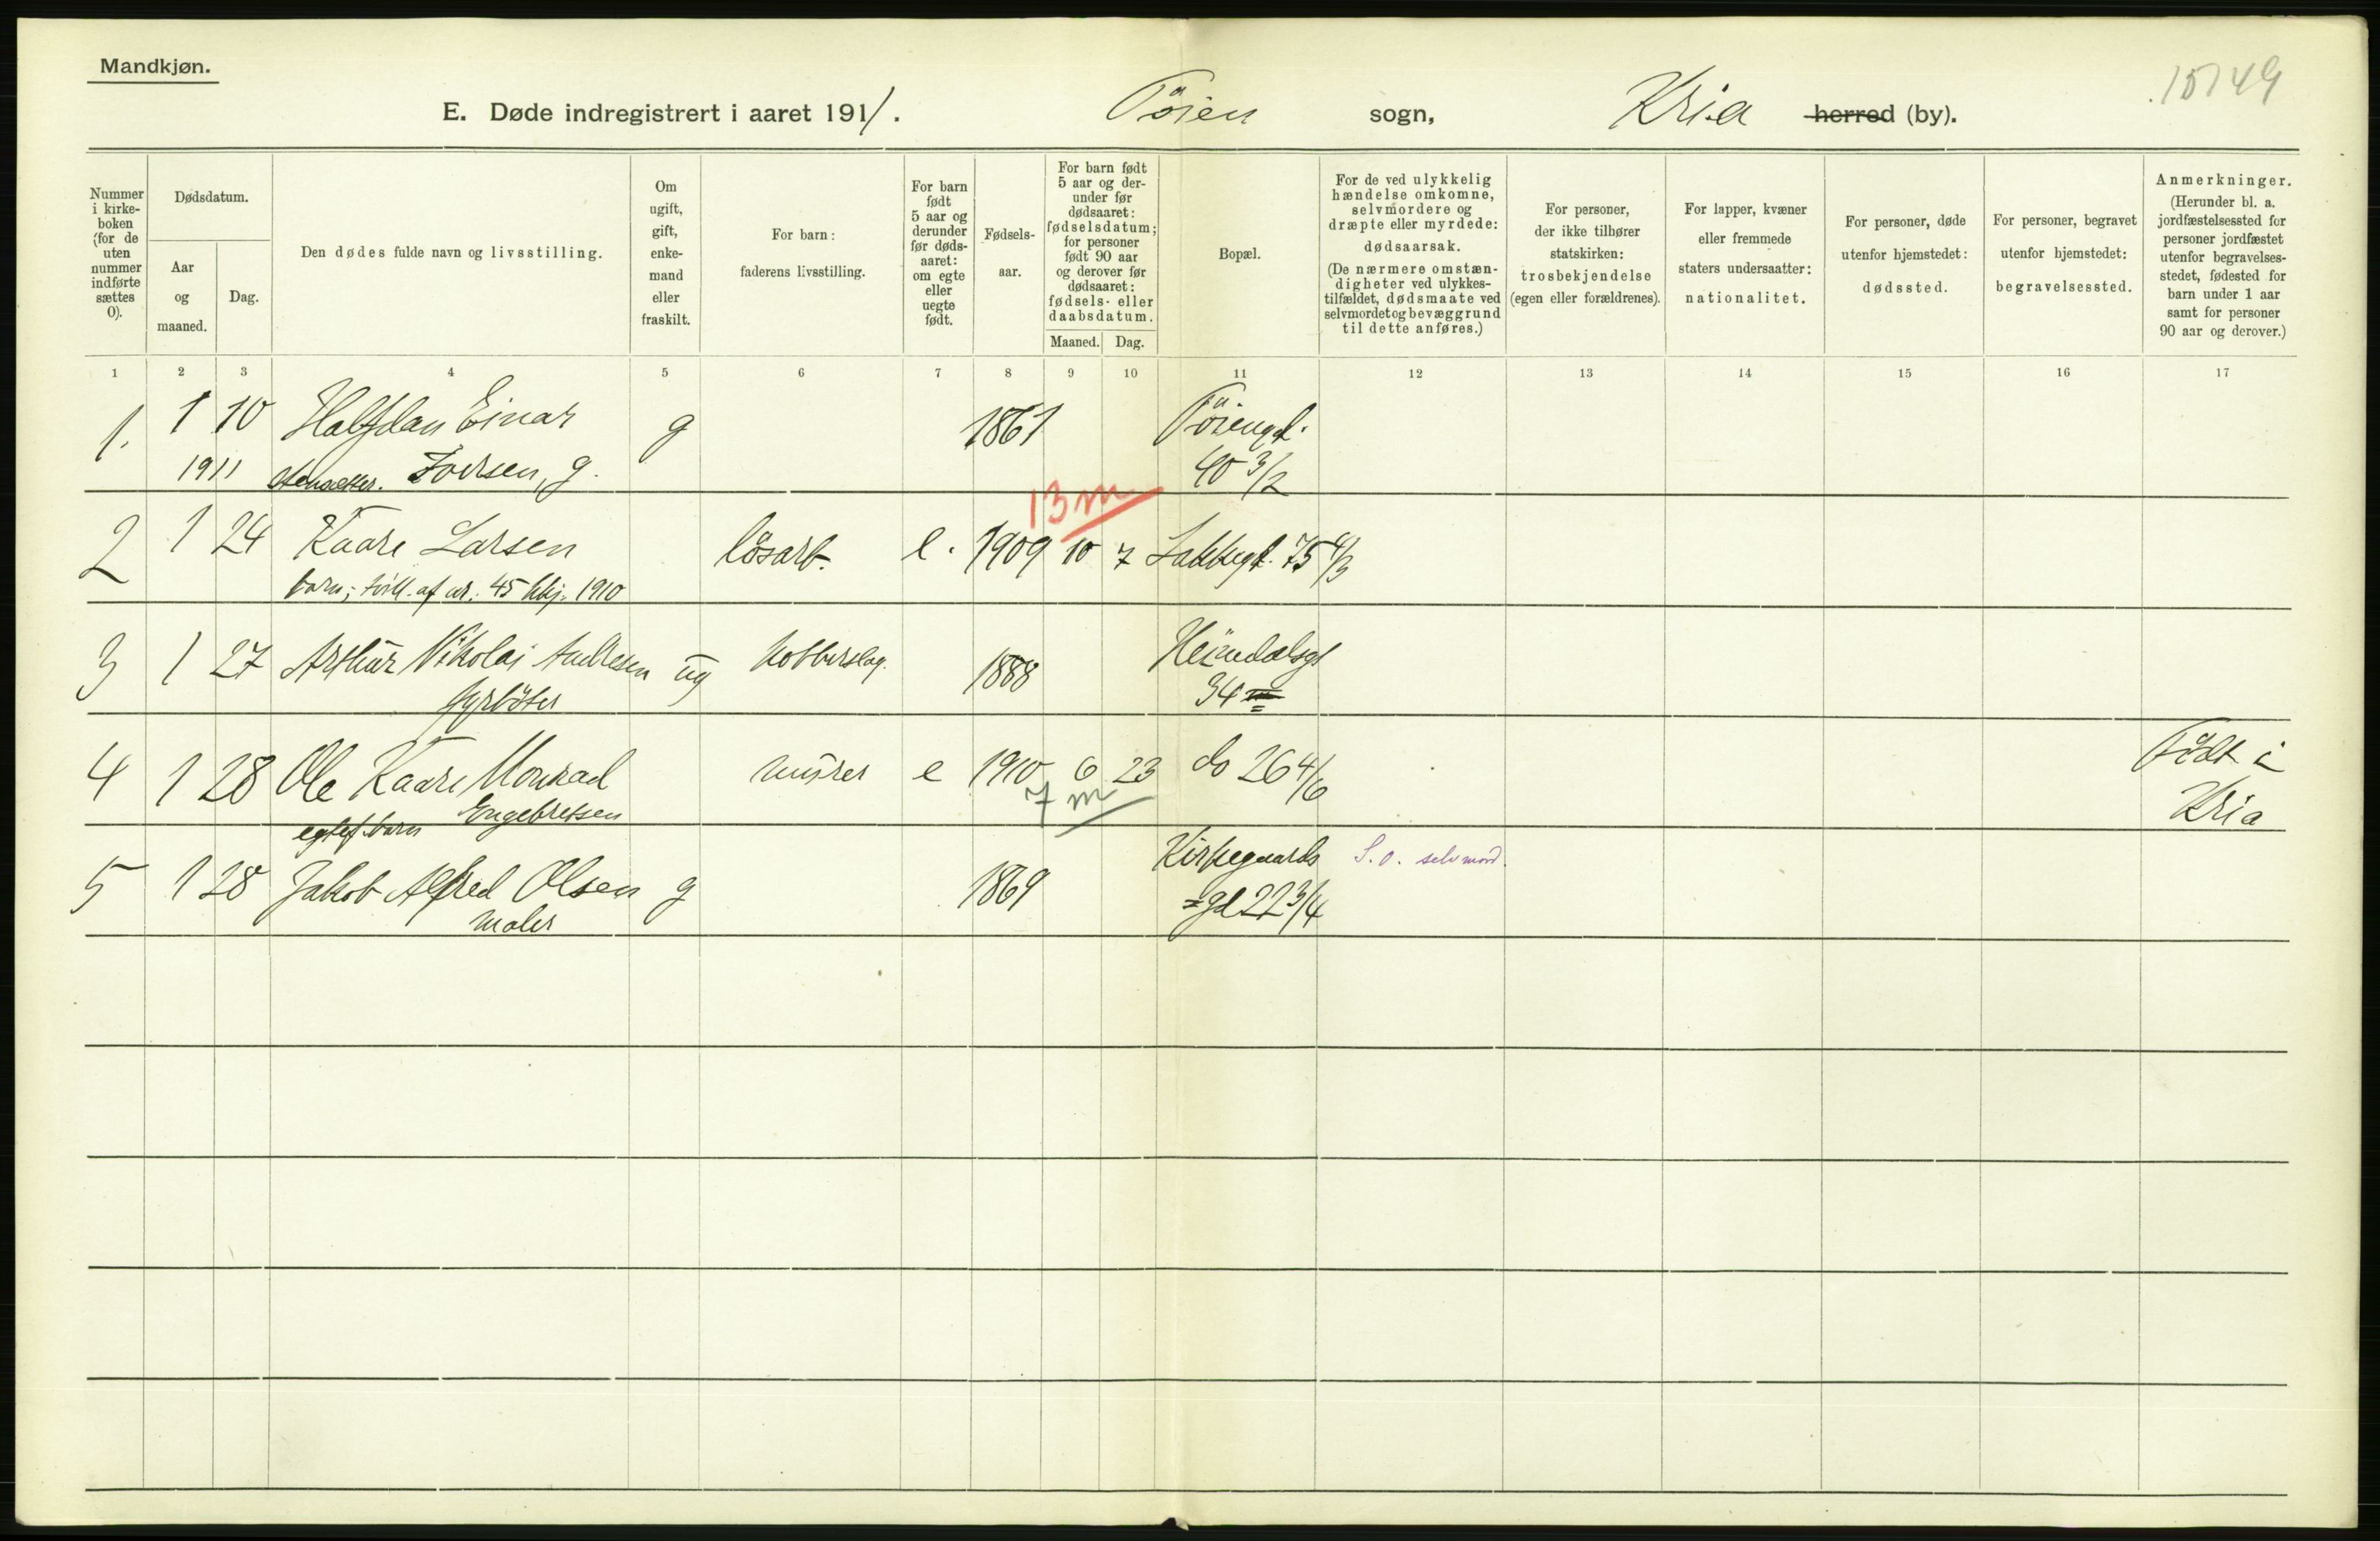 Mandkjøn.
15149
E. Døde indregistrert i aaret 1911. Töien sogn, Kria herred (by).
Nummer i kirkeboken (for de uten nummer indførte sættes 0).
Dødsdatum.
Aar og maaned.
Dag.
Den dødes fulde navn og livsstilling.
Om ugift, gift, enkemand eller fraskilt.
For barn: faderens livsstilling.
For barn født 5 aar og derunder før dødsaaret: om egte eller uegte født.
Fødselsaar.
For barn født 5 aar og derunder før dødsaaret: fødselsdatum; for personer født 90 aar og derover før dødsaaret: fødsels- eller daabsdatum.
Maaned. Dag.
Bopæl.
For de ved ulykkelig hændelse omkomne, selvmordere og dræpte eller myrdede: dødsaarsak. (De nærmere omstændigheter ved ulykkestilfældet, dødsmaate ved selvmordet og bevæggrund til dette anføres.)
For personer, der ikke tilhører statskirken: trosbekjendelse (egen eller forældrenes).
For lapper, kvæner eller fremmede staters undersaatter: nationalitet.
For personer, døde utenfor hjemstedet: dødssted.
For personer, begravet utenfor hjemstedet: begravelsessted.
Anmerkninger. (Herunder bl. a. jordfæstelsessted for personer jordfæstet utenfor begravelsesstedet, fødested for barn under 1 aar samt for personer 90 aar og derover.)
1 2 3 4 5 6 7 8 9 10 11 12 13 14 15 16 17
1. 1 10 Halfdan Einar g 1861 Töiengt.
1911 Iversen, g. 40 3/2
13 m
2 1 24 Kaare Larsen lösarb. e. 1909 10 7 Lakkegt. 75 4/3
barn; tvill. af nr. 45 hhj. 1910
3 1 27 Arthur Nikolai Andresen ug kobberslag. 1888 Heimdalsgt
fyrböter 34
4 1 28 Ole Kaare Monrad murer e 1910 6 23 do 26 4/6 Födt i
Engebretsen 7 m Kria
egtef. barn
5 1 28 Jakob Alfred Olsen g 1869 Kirkegaards S. o. selvmord.
maler gd 22 3/4